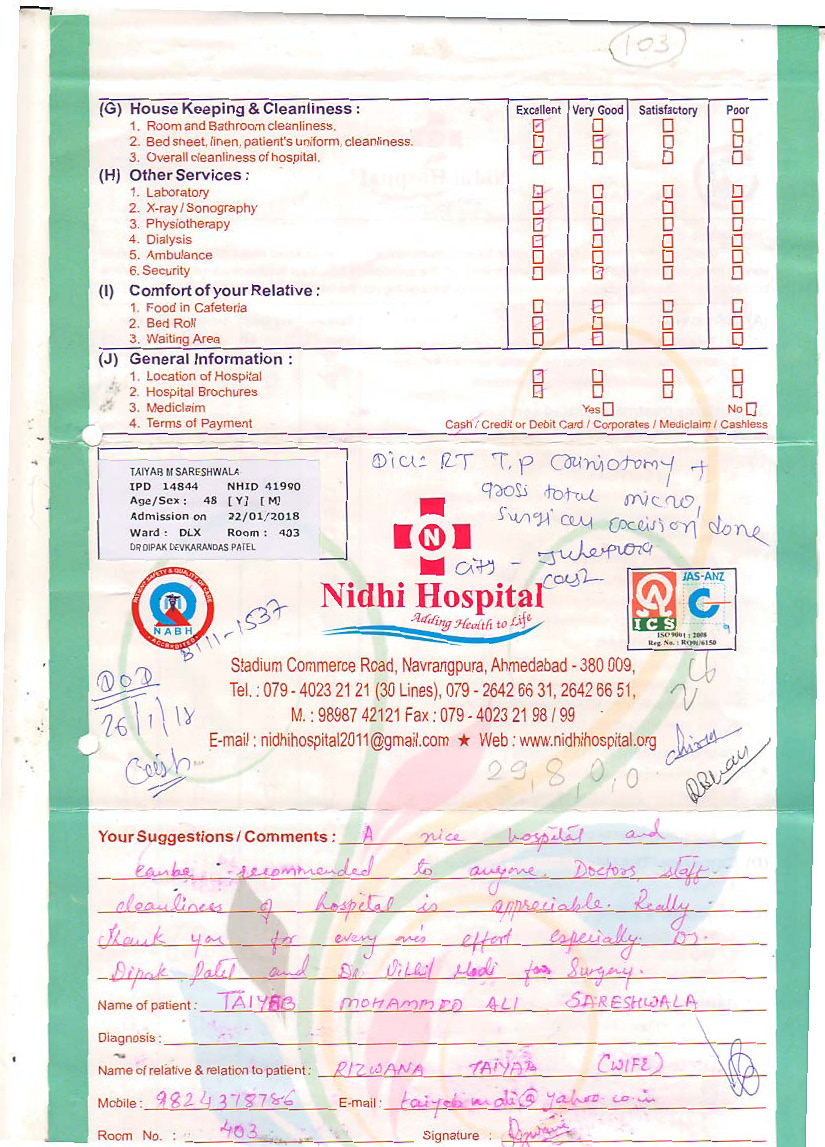 103
(G) House Keeping & Cleanliness : Excellent Very Good Satisfactory Poor
1. Room and Bathroom cleanliness.
2. Bed sheet, linen, patient's uniform, cleanliness.
3. Overall cleanliness of hospital.
(H) Other Services :
1. Laboratory
2. X-ray / Sonography
3. Physiotherapy
4. Dialysis
5. Ambulance
6. Security
(I) Comfort of your Relative :
1. Food in Cafeteria
2. Bed Roll
3. Waiting Area
(J) General Information :
1. Location of Hospital
2. Hospital Brochures
3. Mediclaim Yes No
4. Terms of Payment Cash / Credit or Debit Card / Corporates / Mediclaim / Cashless
TAIYAB M SARESHWALA
IPD 14844 NHID 41990
Age/Sex : 48 [Y] [M]
Admission on 22/01/2018
Ward : DLX Room : 403
DR DIPAK DEVKARANDAS PATEL
RT T.P Craniotomy +
gross total micro,
surgical excision done
City - Juhapura
N
Nidhi Hospital
Adding Health to Life
PATIENT SAFETY & QUALITY OF CARE
NABH
ACCREDITED
B111-1537
JAS-ANZ
ICS
ISO 9001 : 2008
Reg. No. : RQ91/6150
Stadium Commerce Road, Navrangpura, Ahmedabad - 380 009,
Tel. : 079 - 4023 21 21 (30 Lines), 079 - 2642 66 31, 2642 66 51,
M. : 98987 42121 Fax : 079 - 4023 21 98 / 99
E-mail : nidhihospital2011@gmail.com ★ Web : www.nidhihospital.org
DOD
26/1/18
Cash
29,8,0,0
Your Suggestions / Comments : A nice hospital and
can be recommended to anyone. Doctors, staff
cleanliness of hospital is appreciable. Really
Thank you for every one's effort especially Dr.
Dipak Patel and Dr. Nikhil Modi for Surgery.
Name of patient : TAIYEB MOHAMMED ALI SARESHWALA
Diagnosis :
Name of relative & relation to patient : RIZWANA TAIYAB (WIFE)
Mobile : 9824378786 E-mail : taiyabmdi@yahoo.co.in
Room No. : 403 Signature :